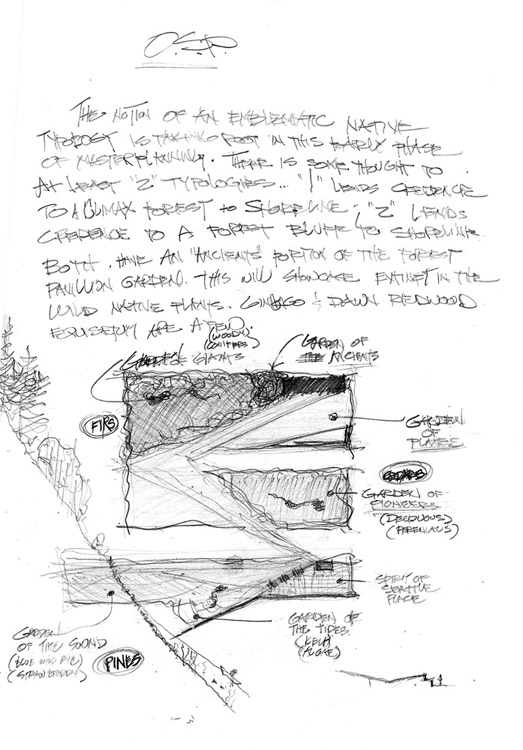 O.S.P.
THE NOTION OF AN EMBLEMATIC NATIVE
FOREST IS TAKING ROOT IN THIS EARLY PHASE
OF MASTERPLANNING. THERE IS SOME THOUGHT TO
AT LEAST "2" TYPOLOGIES... "1" LENDS CREDENCE
TO A CLIMAX FOREST TO SHORELINE; "2" LENDS
CREDENCE TO A FOREST BLUFF TO SHORELINE.
BOTH HAVE AN "ANCIENTS" PORTION OF THE FOREST
PAVILION GARDEN. THIS WILL SHOWCASE EXTINCT IN THE
WILD NATIVE PLANTS. GINKGO & DAWN REDWOOD
EQUISETUM ARE A FEW.
(WOODY)
(CONIFERS)
GIANTS
GARDEN OF
THE ANCIENTS
FIRS
GARDEN
OF
CEDARS
GARDEN OF
PIONEERS
(DECIDUOUS)
(PERENNIALS)
SPIRIT OF
SEATTLE
PLACE
GARDEN
OF THE SOUND
(BLUE WILD RYE)
(STRAWBERRY)
PINES
GARDEN OF
THE TIDES
(KELP)
(ALGAE)